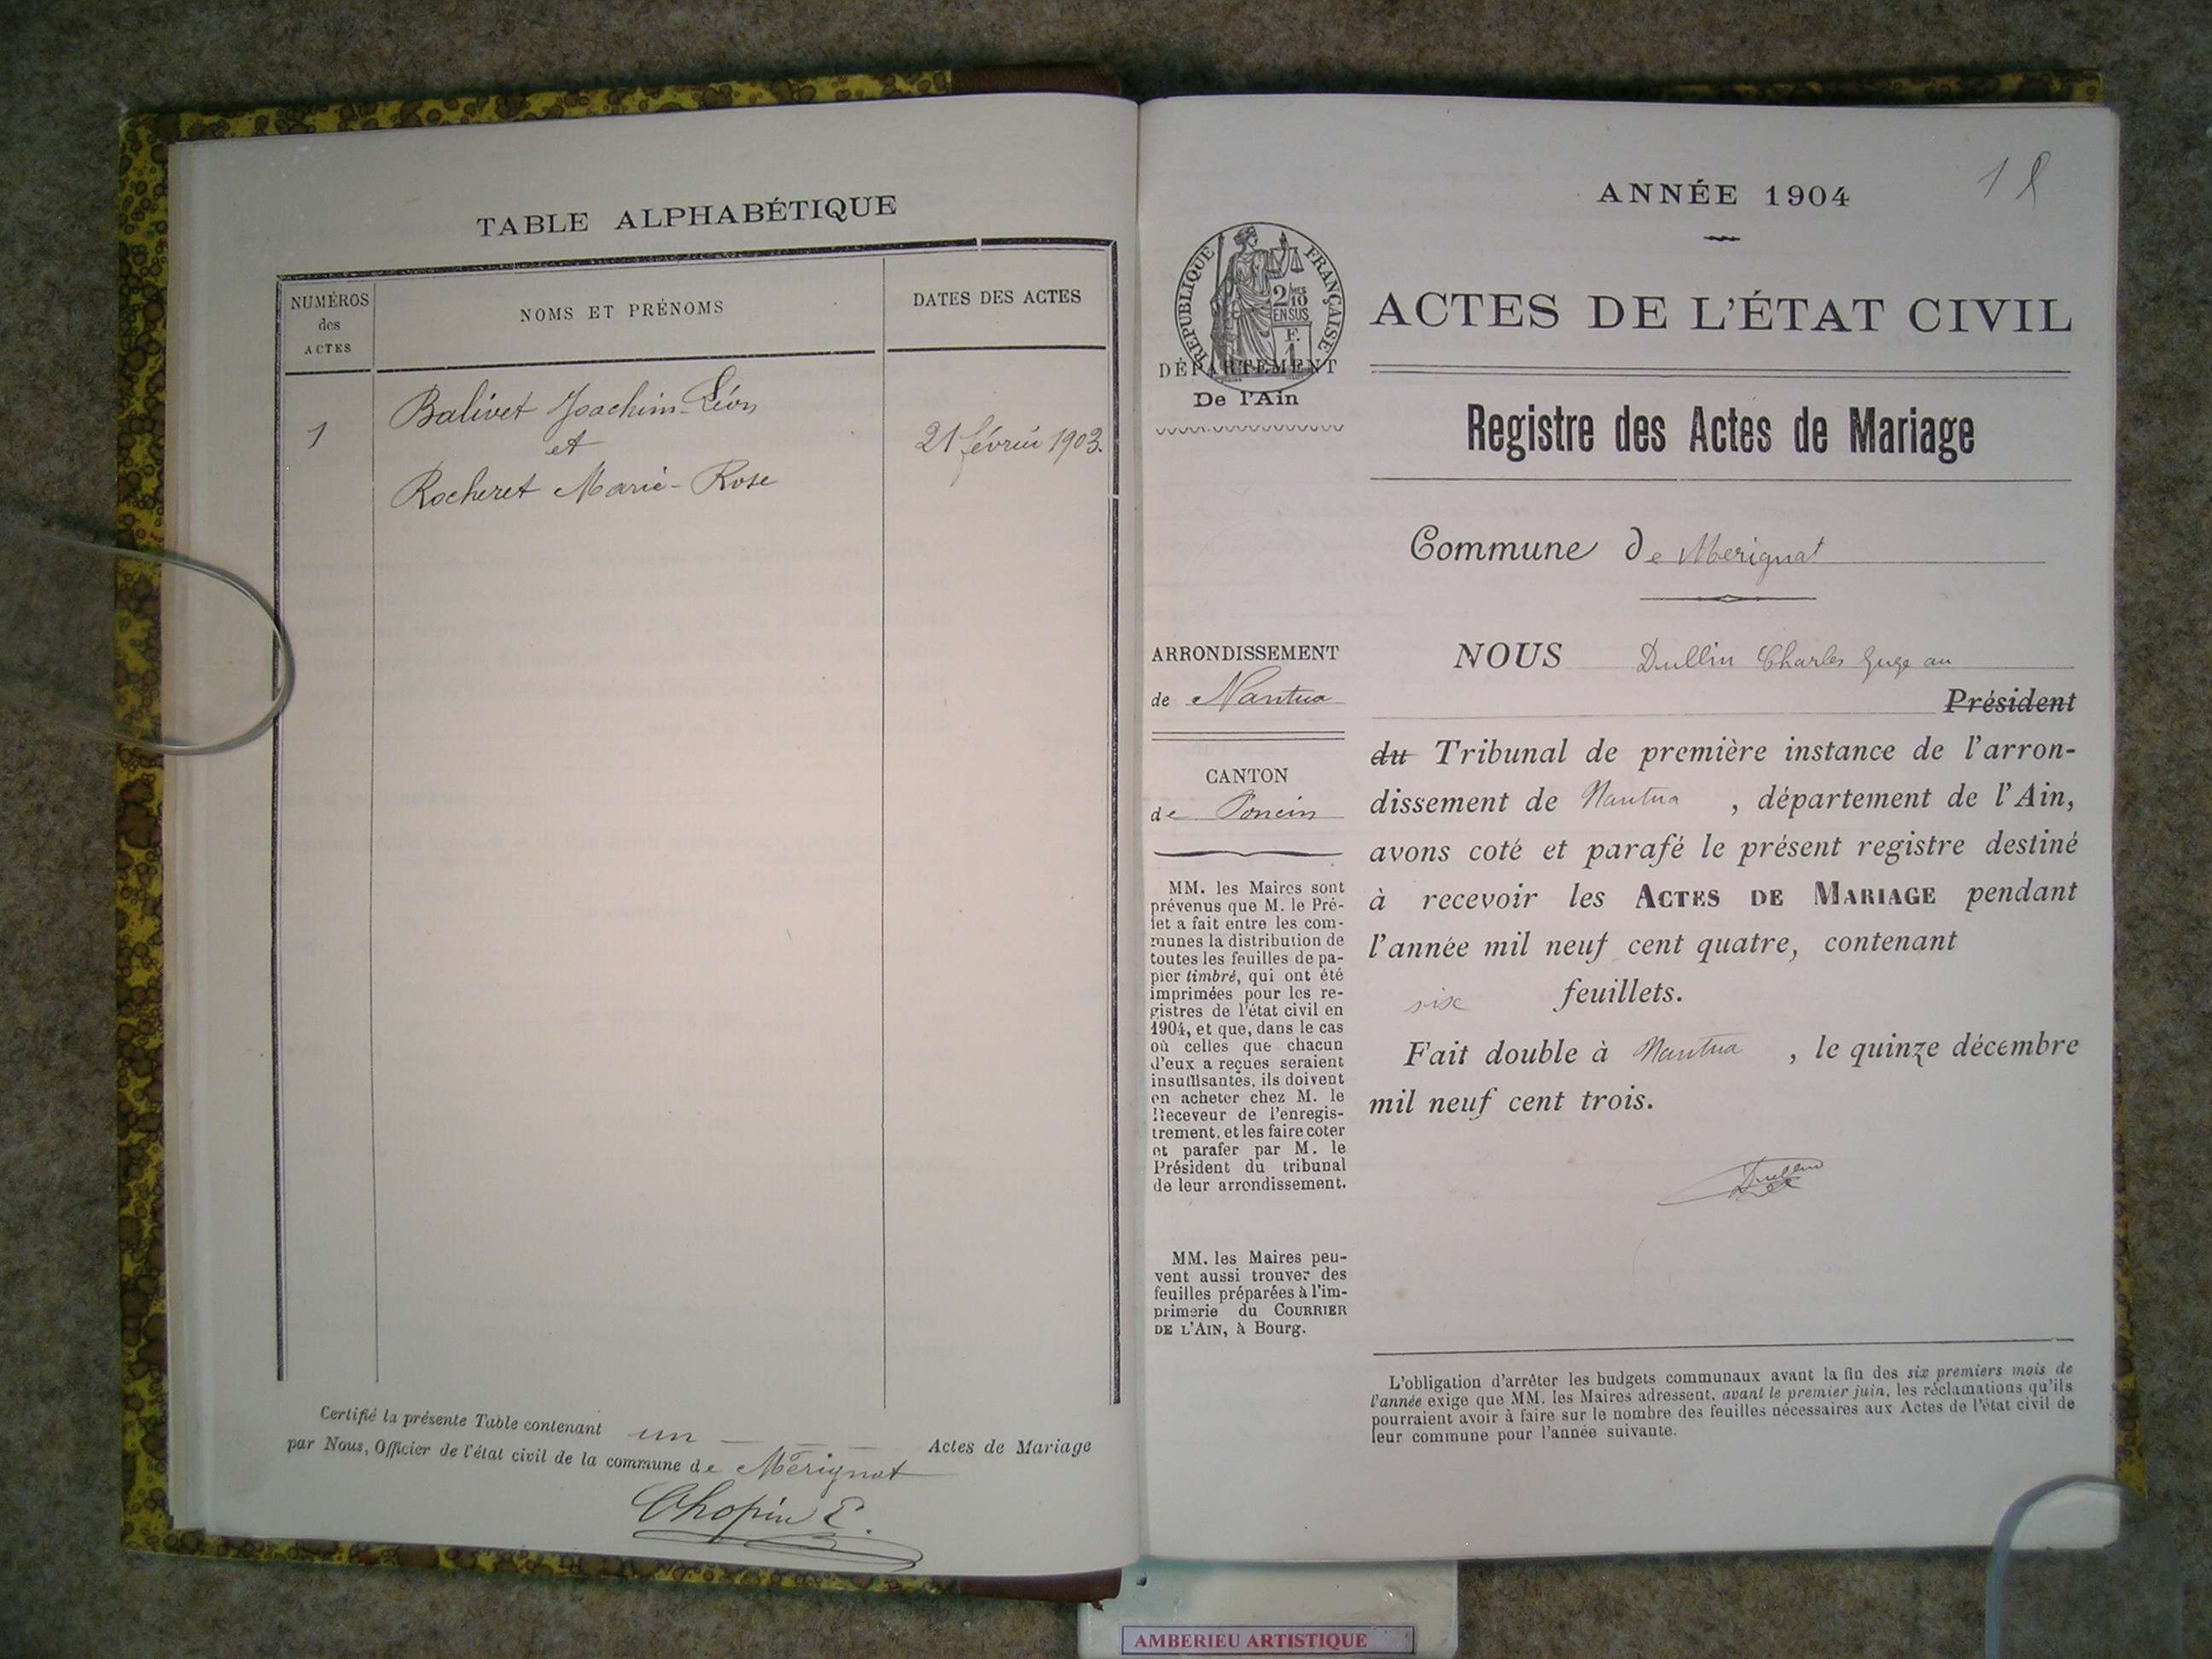 TABLE ALPHABÉTIQUE
NUMÉROS
des
ACTES
NOMS ET PRÉNOMS
DATES DES ACTES
1
Balivet Joachim-Léon
et
Rocheret Marie-Rose
21 février 1903.
Certifié la présente Table contenant un Actes de Mariage
par Nous, Officier de l'état civil de la commune de Mérignat
Chopin E.
ANNÉE 1904
ACTES DE L'ÉTAT CIVIL
REPUBLIQUE FRANÇAISE
2/10
EN SUS
F.
1
DÉPARTEMENT
De l'Ain
Registre des Actes de Mariage
Commune de Merignat
ARRONDISSEMENT
de Nantua
CANTON
de Poncin
MM. les Maires sont
prévenus que M. le Pré-
fet a fait entre les com-
munes la distribution de
toutes les feuilles de pa-
pier timbré, qui ont été
imprimées pour les re-
gistres de l'état civil en
1904, et que, dans le cas
où celles que chacun
d'eux a reçues seraient
insuffisantes, ils doivent
en acheter chez M. le
Receveur de l'enregis-
trement, et les faire coter
et parafer par M. le
Président du tribunal
de leur arrondissement.
MM. les Maires peu-
vent aussi trouver des
feuilles préparées à l'im-
primerie du COURRIER
DE L'AIN, à Bourg.
NOUS Dullin Charles Juge au
Président
du Tribunal de première instance de l'arron-
dissement de Nantua , département de l'Ain,
avons coté et parafé le présent registre destiné
à recevoir les ACTES DE MARIAGE pendant
l'année mil neuf cent quatre, contenant
six feuillets.
Fait double à Nantua , le quinze décembre
mil neuf cent trois.
Dullin
L'obligation d'arrêter les budgets communaux avant la fin des six premiers mois de
l'année exige que MM. les Maires adressent, avant le premier juin, les réclamations qu'ils
pourraient avoir à faire sur le nombre des feuilles nécessaires aux Actes de l'état civil de
leur commune pour l'année suivante.
AMBERIEU ARTISTIQUE